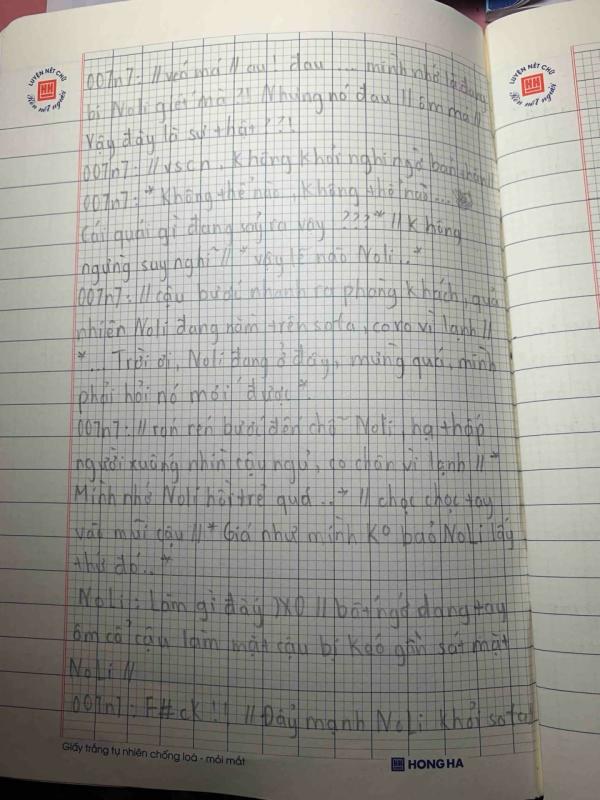 LUYỆN NÉT CHỮ
Rèn nết người
LUYỆN NÉT CHỮ
Rèn nết người
007n7: // véo má // au! đau ... mình nhớ là đang
bị Noli giết Nhưng nó đau // ôm má //
Vậy đây là sự thật ??!
007n7: // vscn, không khỏi nghi ngờ bản thân //
007n7: * Không thể nào, không thể nào ...
Cái quái gì đang sảy ra vậy ???* // Không
ngừng suy nghĩ // * vậy lẽ nào Noli..*
007n7: // cậu bước nhanh ra phòng khách, quả
nhiên Noli đang nằm trên sofa, co ro vì lạnh //
*... Trời ơi, Noli đang ở đây, mừng quá, mình
phải hỏi nó mới được *.
007n7: // rón rén bước đến chỗ Noli, hạ thấp
người xuống nhìn cậu ngủ, co chân vì lạnh // *
Mình nhớ Noli hồi trẻ quá ..* // chọc chọc tay
vào mũi cậu // * Giá như mình K° bảo NoLi lấy
thứ đó..*
Noli: Làm gì đấy )XD // bất ngờ dang tay
ôm cổ cậu làm mặt cậu bị kéo gần sát mặt
NoLi //
007n7: F#ck!! // Đẩy mạnh NoLi khỏi sofa/
Giấy trắng tự nhiên chống loá - mỏi mắt
HH HONG HA